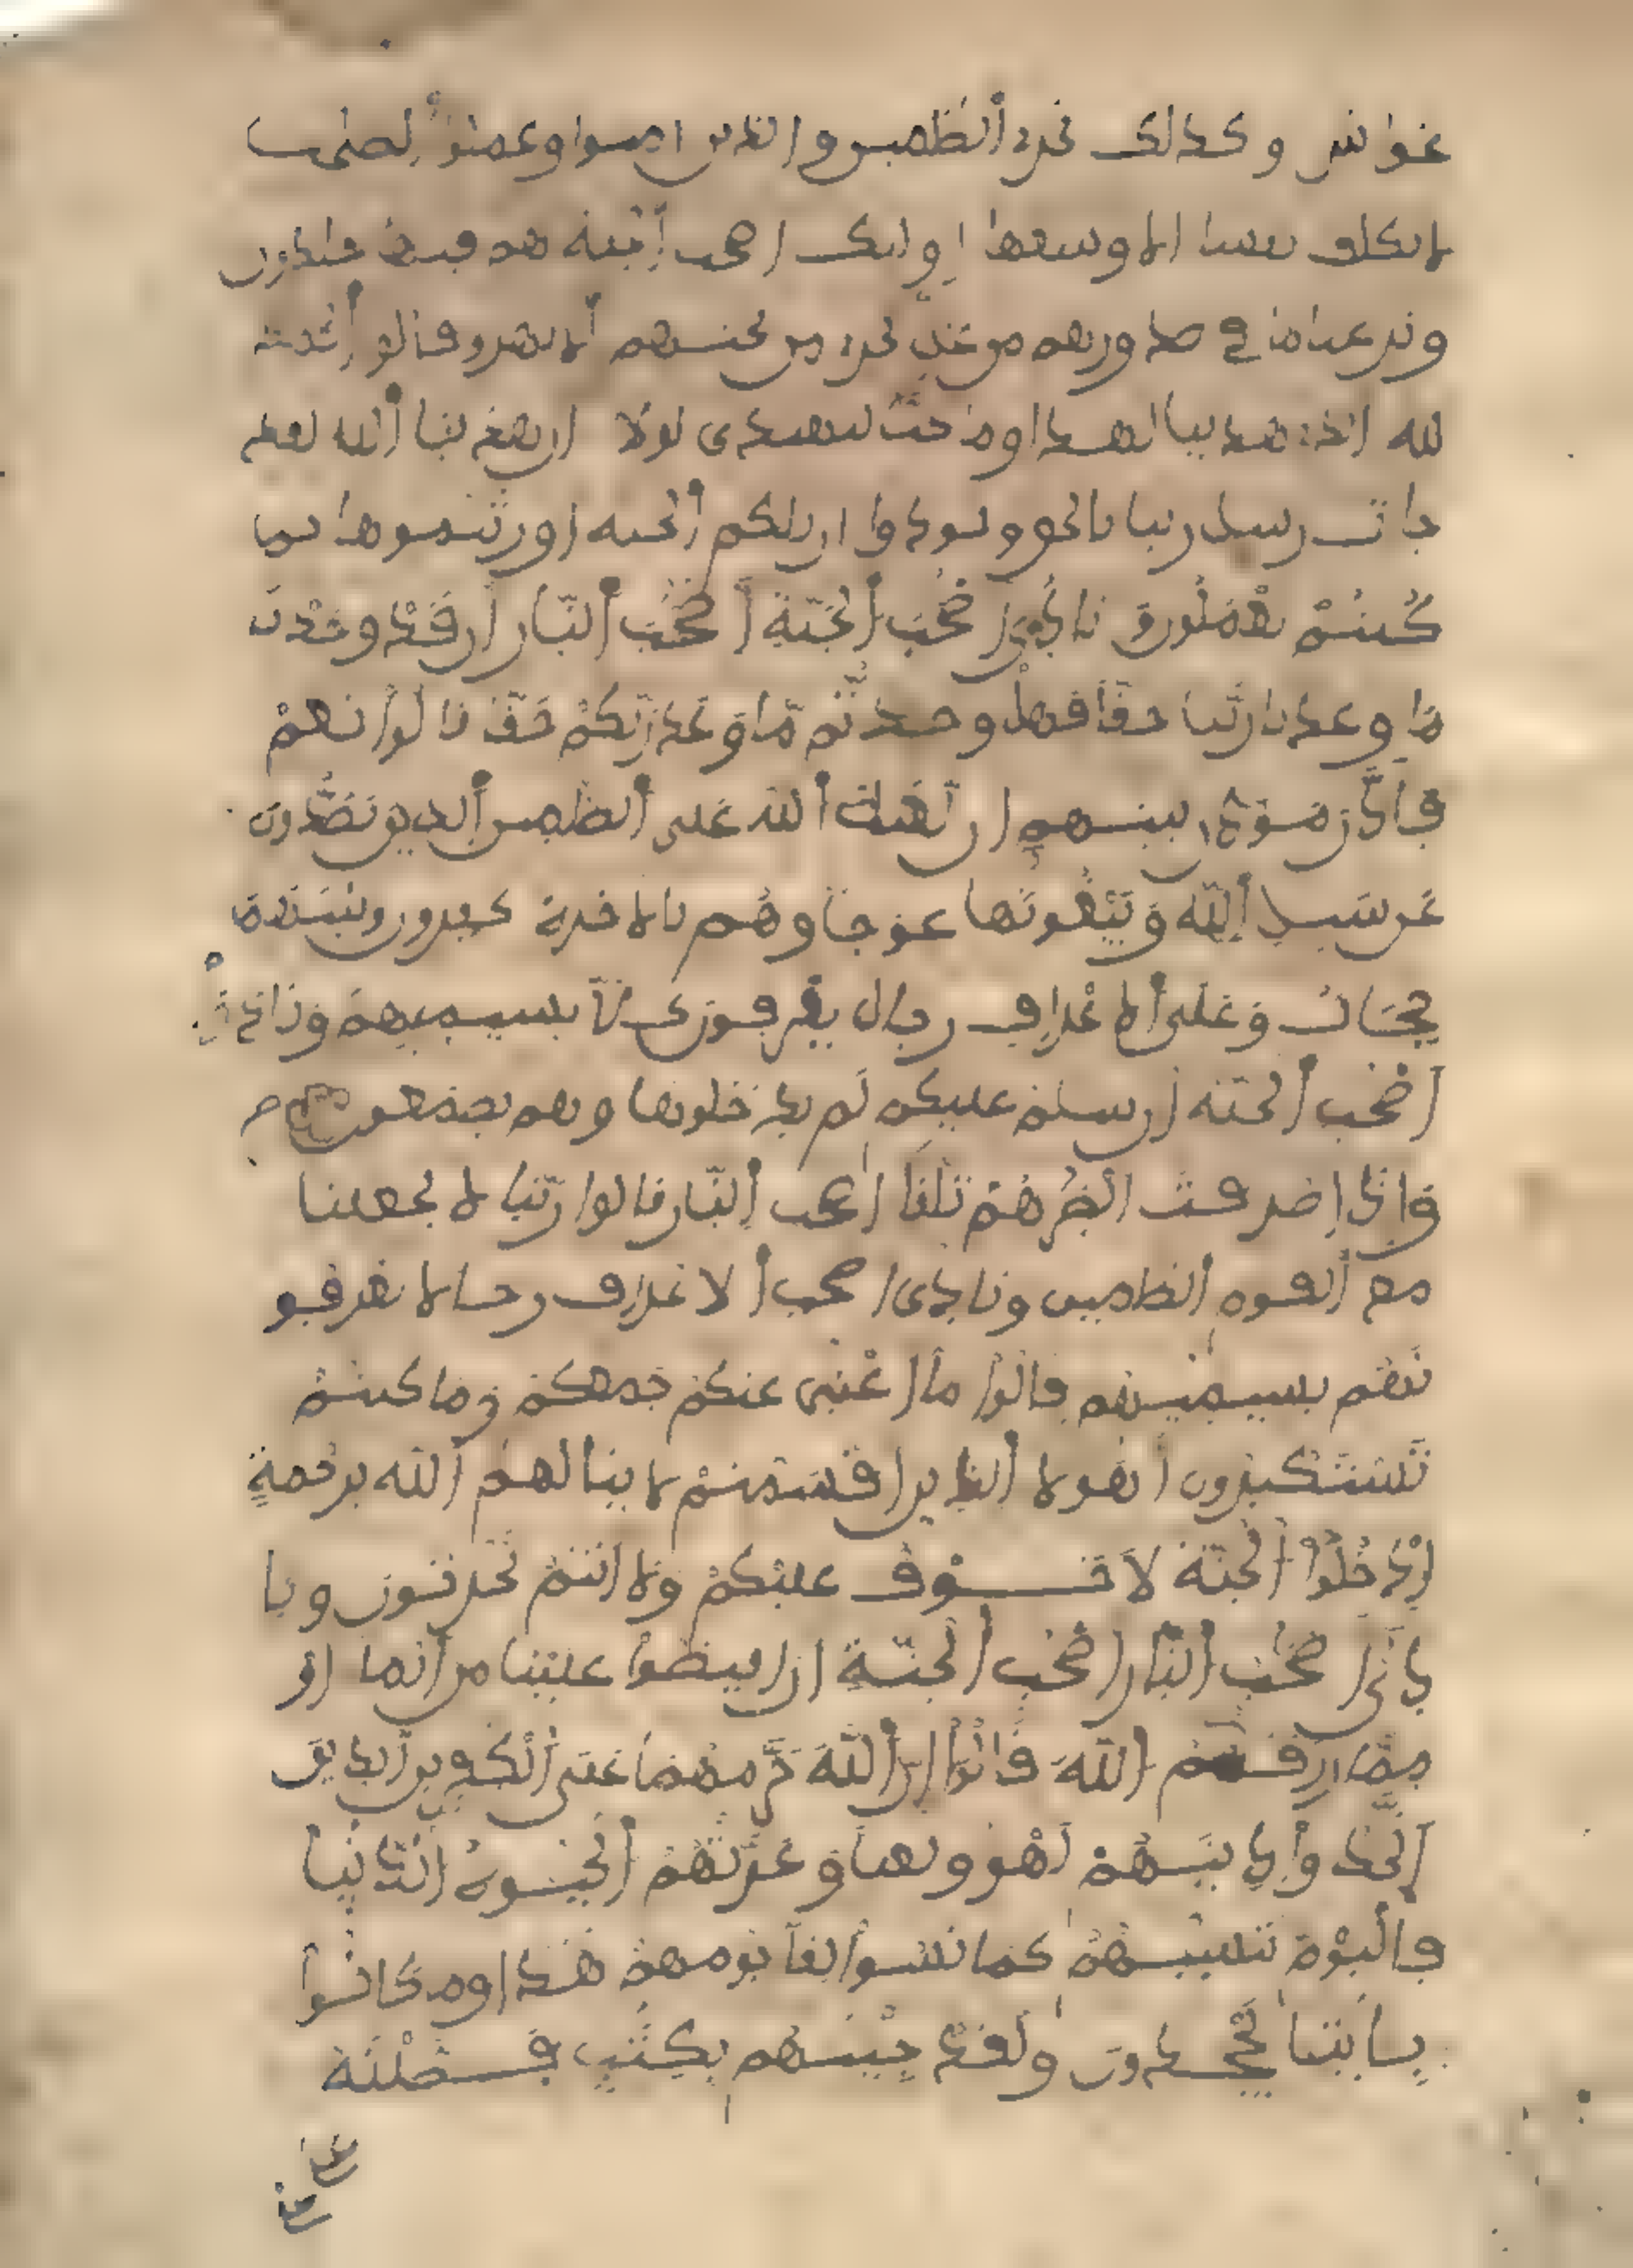 غواش وكذلك نجزي الظلمين والذين امنوا وعملوا الصلحت
لا نكلف نفسا الا وسعها اوليك اصحب الجنة هم فيها خلدون
ونزعنا ما في صدورهم من غل تجري من تحتهم الانهر وقالوا الحمد
لله الذي هدينا لهذا وما كنا لنهتدي لولا ان هدينا الله لقد
جات رسل ربنا بالحق ونودوا ان تلكم الجنة اورثتموها بما
كُنتُمْ تعْمَلُونَ نادى أصْحَبُ الجَنّةِ أصْحَبَ النّار أن قَدْ وجَدْنَا
مَا وعدنا رَبُّنا حقّاً فهلْ وجدتُّم مّا وَعَدَ رَبّكُمْ حَقّاً قالُوا نعمْ
فأذّنَ مُؤذّن بينهم ان لّعنة الله على الظلمين الذين يَصُدُّونَ
عَن سَبيل الله وَيَبْغُونَها عوجاً وهُم بالاخرة كفرون وبَيْنَهُمَا
حِجَابٌ وَعَلى الاعْرافِ رجال يعْرفون كلّا بسيميهمْ وَنادوا
أصْحَب الجنّة أن سلم عليكم لم يدْخلوها وهم يطمعون
وَإذا صُرفتَ ابْصرُهُمْ تلقا أصحب النّار قالوا ربّنا لا تجعلنا
مع القوم الظلمين ونادى اصحب الاعراف رجالا يعرفو
نَهُم بسيميهم قالوا ما أغْنى عنكم جمعكم وما كنتمْ
تَسْتَكْبرون أهولا الذين اقسمتمْ لا ينالهم الله برحمةٍ
ادْخُلُوا الجنّة لاَ خَوْف عليْكمْ ولا أنتمْ تحزنون ونا
دَى أصْحُب النّار أصْحُب الجنّة ان افيضُوا علينا من الما او
ممّا رزقكمُ اللّهَ قالُوا إنّ اللّهَ حَرّمهُمَا عَلَى الْكفِرين الذينَ
اتّخذوا دينَهُمْ لَهْو ولعبا وَغَرّتْهُمُ الحيوة الدّنْيا
فاليوْمَ ننسيهُمْ كما نسُوا لقآ يومهمْ هَذا وما كانُوا
بِـايَتِنا يجْحدون ولَقَدْ جِيْنَهُم بِكِتَبٍ فَصَّلْنَهُ